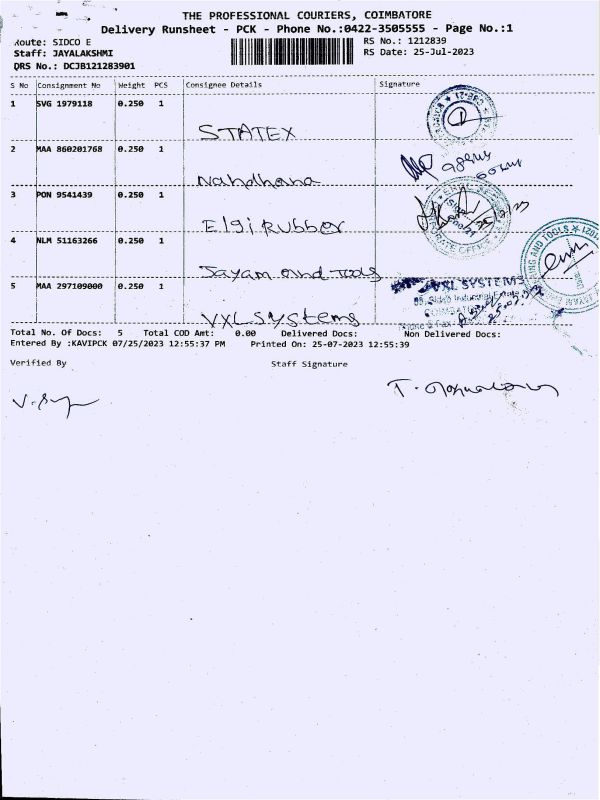 THE PROFESSIONAL COURIERS, COIMBATORE
Delivery Runsheet - PCK - Phone No.:0422-3505555 - Page No.:1
Route: SIDCO E RS No.: 1212839
Staff: JAYALAKSHMI RS Date: 25-Jul-2023
QRS No.: DCJB121283901
S No Consignment No Weight PCS Consignee Details Signature
1 SVG 1979118 0.250 1
STATEX
2 MAA 860201768 0.250 1
Nandhana
3 PON 9541439 0.250 1
Elgi Rubber
4 NLM 51163266 0.250 1
Jayam and Tools
5 MAA 297109000 0.250 1
VXL SYSTEMS
VXL systems
Total No. Of Docs: 5 Total COD Amt: 0.00 Delivered Docs: Non Delivered Docs:
Entered By :KAVIPCK 07/25/2023 12:55:37 PM Printed On: 25-07-2023 12:55:39
Verified By Staff Signature